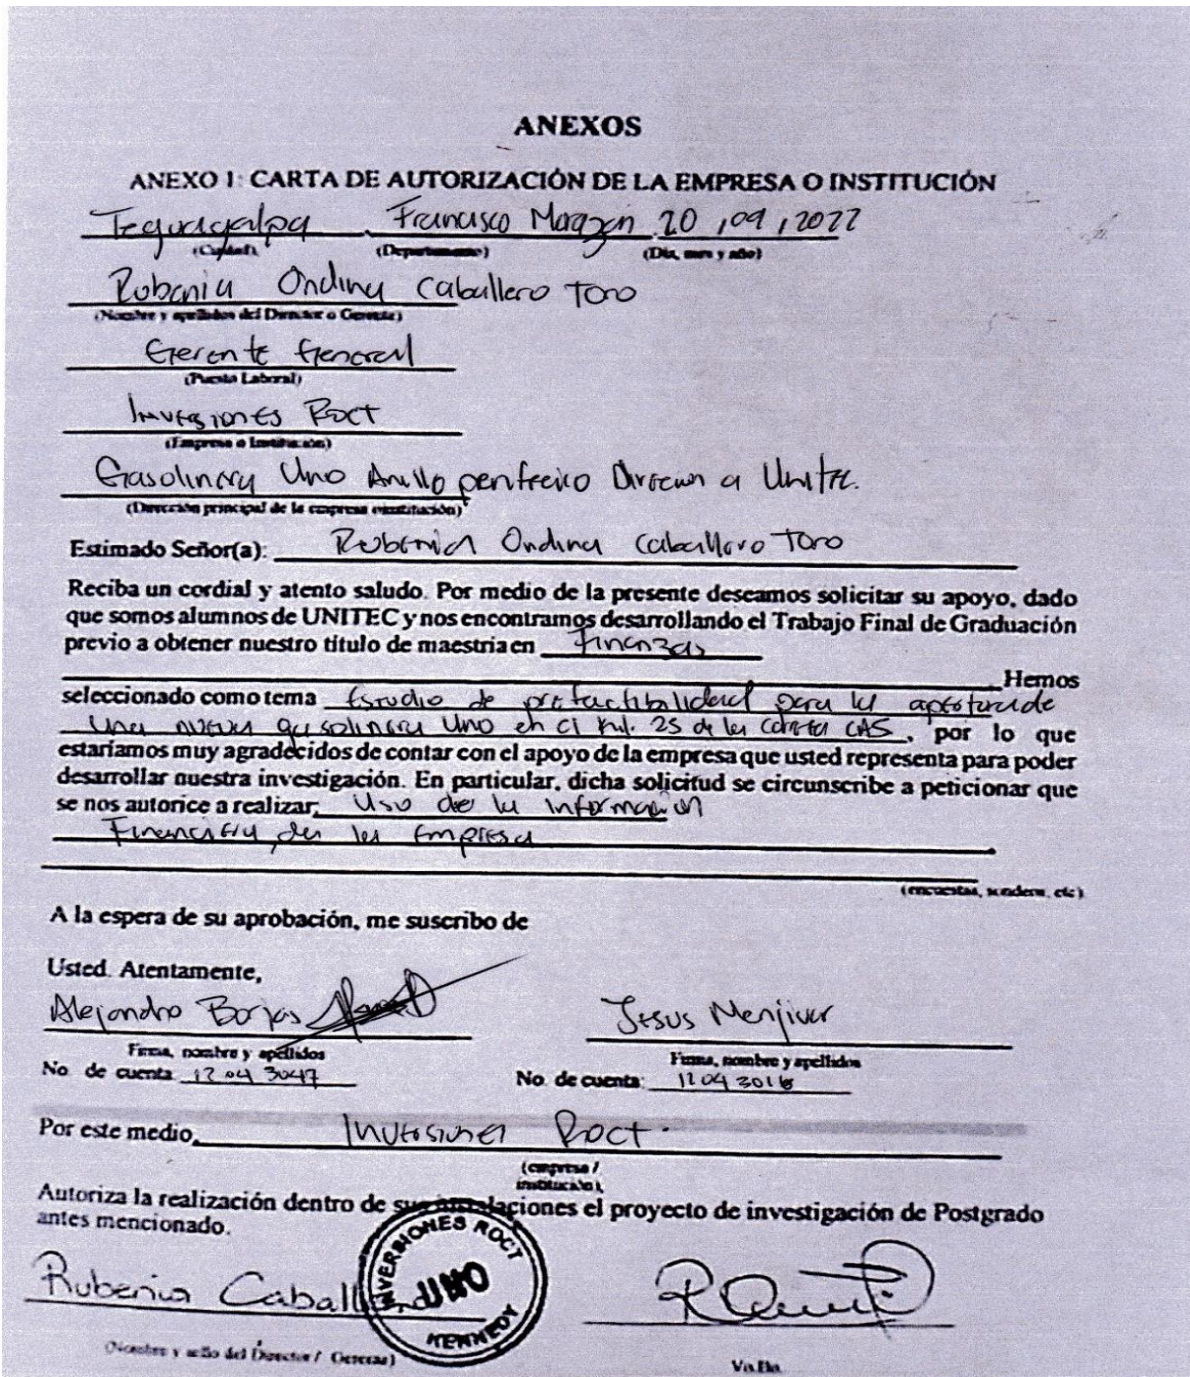 ANEXOS
ANEXO 1: CARTA DE AUTORIZACIÓN DE LA EMPRESA O INSTITUCIÓN
Tegucigalpa Francisco Morazán 20 / 09 / 2022
(Capital) (Departamento) (Día, mes y año)
Rubenia Ondina Caballero Toro
(Nombre y apellidos del Director o Gerente)
Gerente General
(Puesto Laboral)
Inversiones Roct
(Empresa o Institución)
Gasolinera Uno Anillo periferico Direccion a Unitec.
(Dirección principal de la empresa o institución)
Estimado Señor(a): Rubenia Ondina Caballero Toro
Reciba un cordial y atento saludo. Por medio de la presente deseamos solicitar su apoyo, dado
que somos alumnos de UNITEC y nos encontramos desarrollando el Trabajo Final de Graduación
previo a obtener nuestro título de maestria en Finanzas
Hemos
seleccionado como tema Estudio de prefactibilidad para la apertura de
una nueva gasolinera Uno en el Km. 25 de la CA5, por lo que
estaríamos muy agradecidos de contar con el apoyo de la empresa que usted representa para poder
desarrollar nuestra investigación. En particular, dicha solicitud se circunscribe a peticionar que
se nos autorice a realizar: Uso de la información
Financiera de la Empresa
(encuestas, sondeos, etc)
A la espera de su aprobación, me suscribo de
Usted. Atentamente,
Alejandro Borjas Jesus Menjivar
Firma, nombre y apellidos Firma, nombre y apellidos
No. de cuenta 12043047 No. de cuenta: 12043016
Por este medio, Inversiones Roct.
(empresa /
institución)
Autoriza la realización dentro de sus instalaciones el proyecto de investigación de Postgrado
antes mencionado.
Rubenia Caballero
INVERSIONES ROCT
UNO
KENNEDY
(Nombre y sello del Director / Gerente) Vo.Bo.